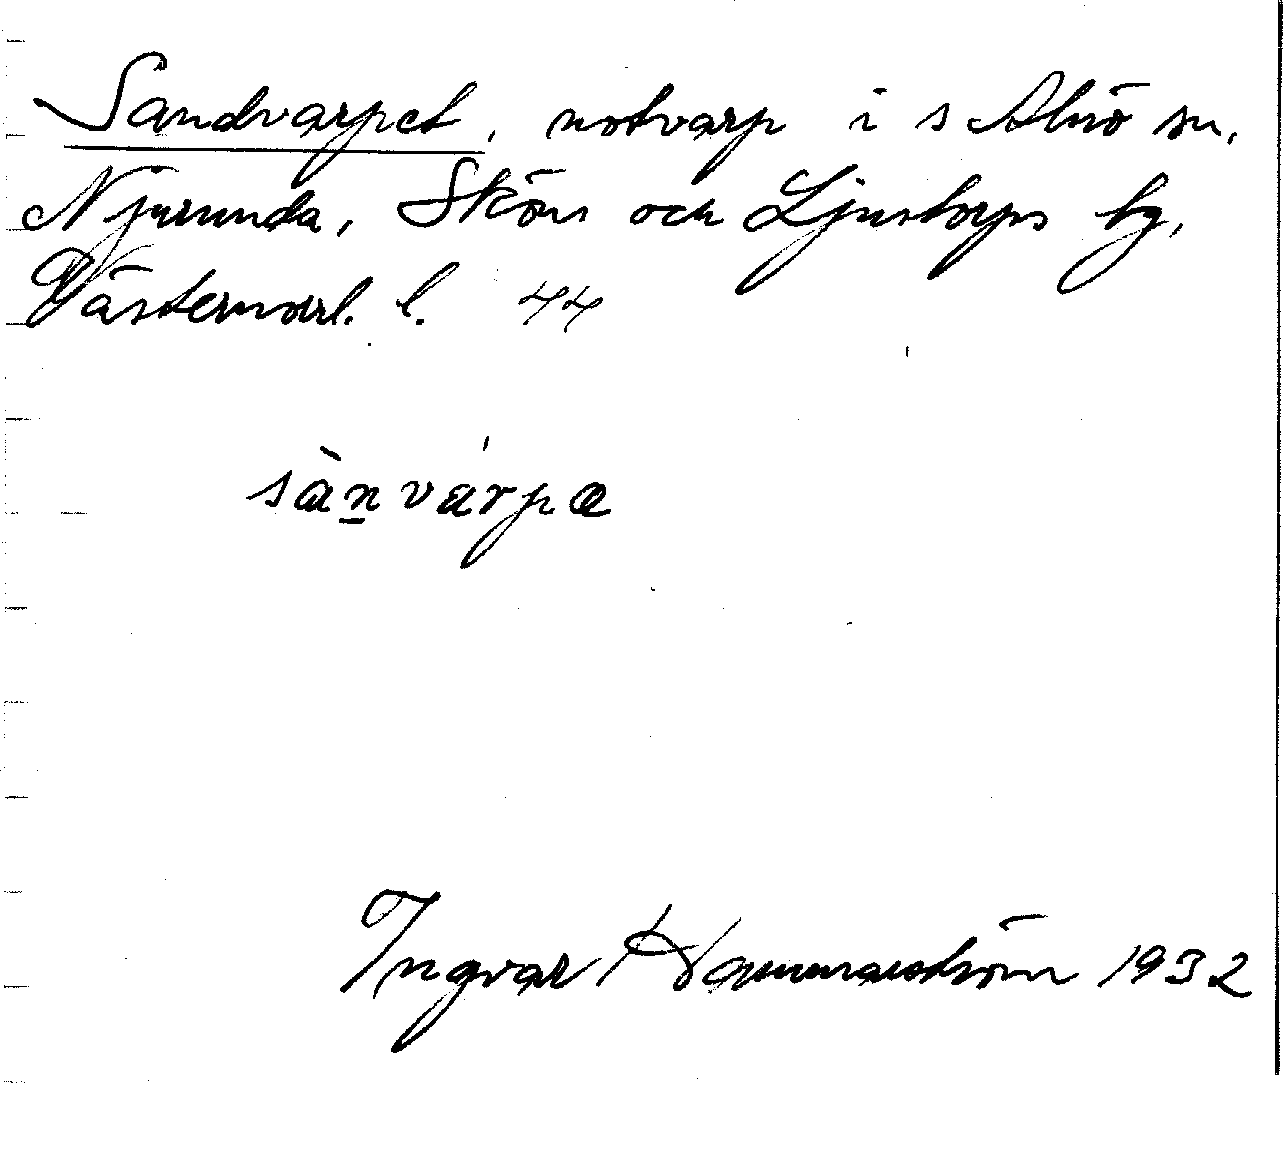 Sandvarpet, notvarp i s Alnö sn,
Njurunda, Sköns och Ljustorps tg,
Västernorrl. l. 44
sàn̠várpa
Ingvar Hammarström 1932